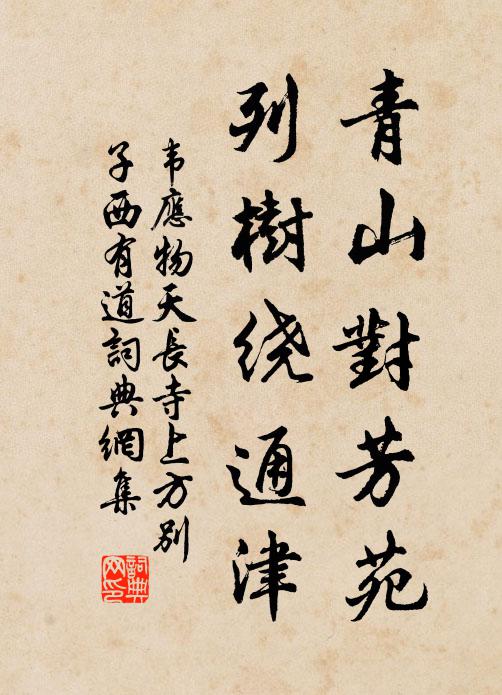 青山對芳苑
列樹绕通津
韦應物天長寺上方别
子西有道詞典網集
詞典
网印